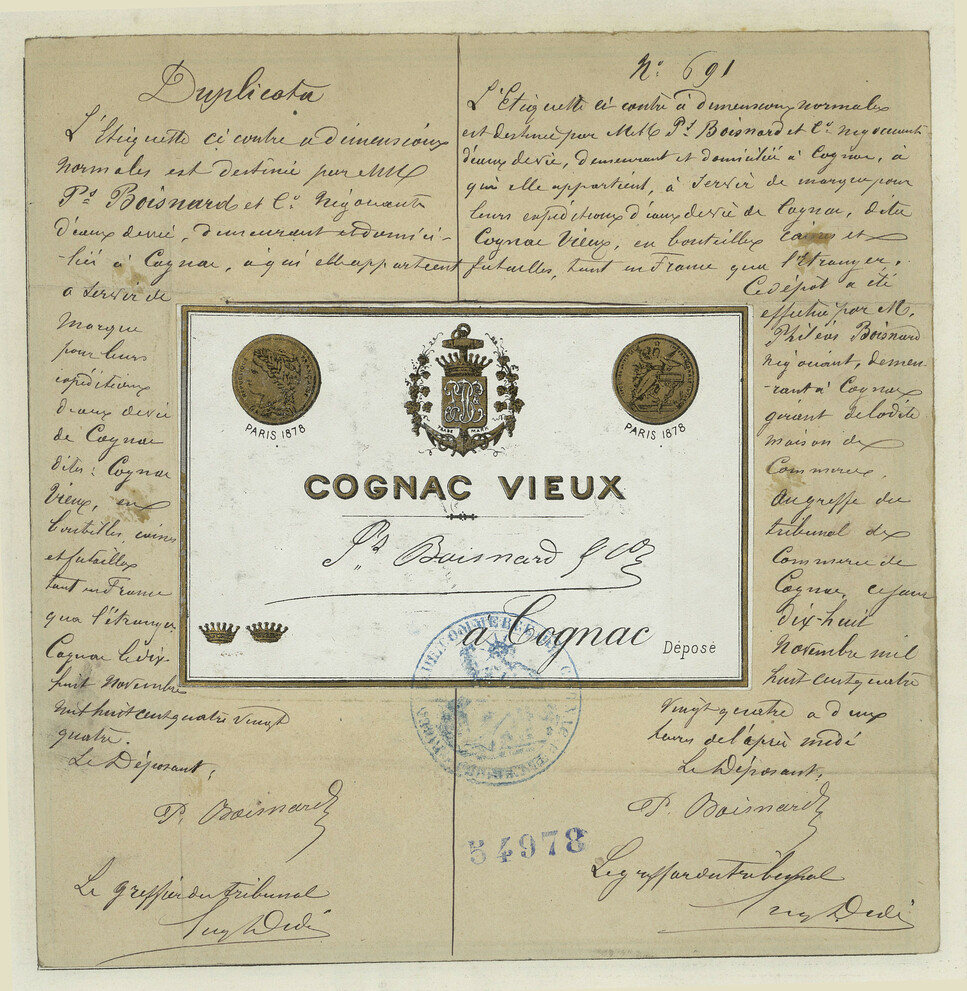 Duplicata
L'Etiquette ci contre a dimensions
normales est destinée par MM
Ps Boisnard et Cie Négociants
d'eaux de vie, demeurant et domici-
-liés à Cognac, à qui elle appartient
à servir de
marque
pour leurs
expéditions
d'eaux de vie
de Cognac
dites: Cognac
Vieux, en
bouteilles, caisses
et futailles
tant en France
qu'a l'étranger.
Cognac le dix-
huit Novembre
mil huit cent quatre vingt
quatre.
Le Déposant,
P. Boisnard
Le greffier du tribunal
No 691
L'Etiquette ci contre à dimensions normales
est destinée par MM Ps Boisnard et Cie négociants
d'eaux de vie, demeurant et domiciliés à Cognac, à
qui elle appartient, à servir de marque pour
leurs expéditions d'eaux de vie de Cognac, dites
Cognac Vieux, en bouteilles caisses et
futailles, tant en France qu'a l'étranger.
Ce dépôt a été
effectué par M.
Philéas Boisnard
négociant, demeu-
-rant à Cognac
gérant de ladite
maison de
Commerce,
au greffe du
tribunal de
Commerce de
Cognac, ce jour
dix-huit
Novembre mil
huit cent quatre
vingt quatre a deux
heures de l'après midi
Le Déposant,
P. Boisnard
Le greffier du tribunal
PARIS 1878
TRADE MARK
PARIS 1878
COGNAC VIEUX
Ps Boisnard & Co
à Cognac
Déposé
54978